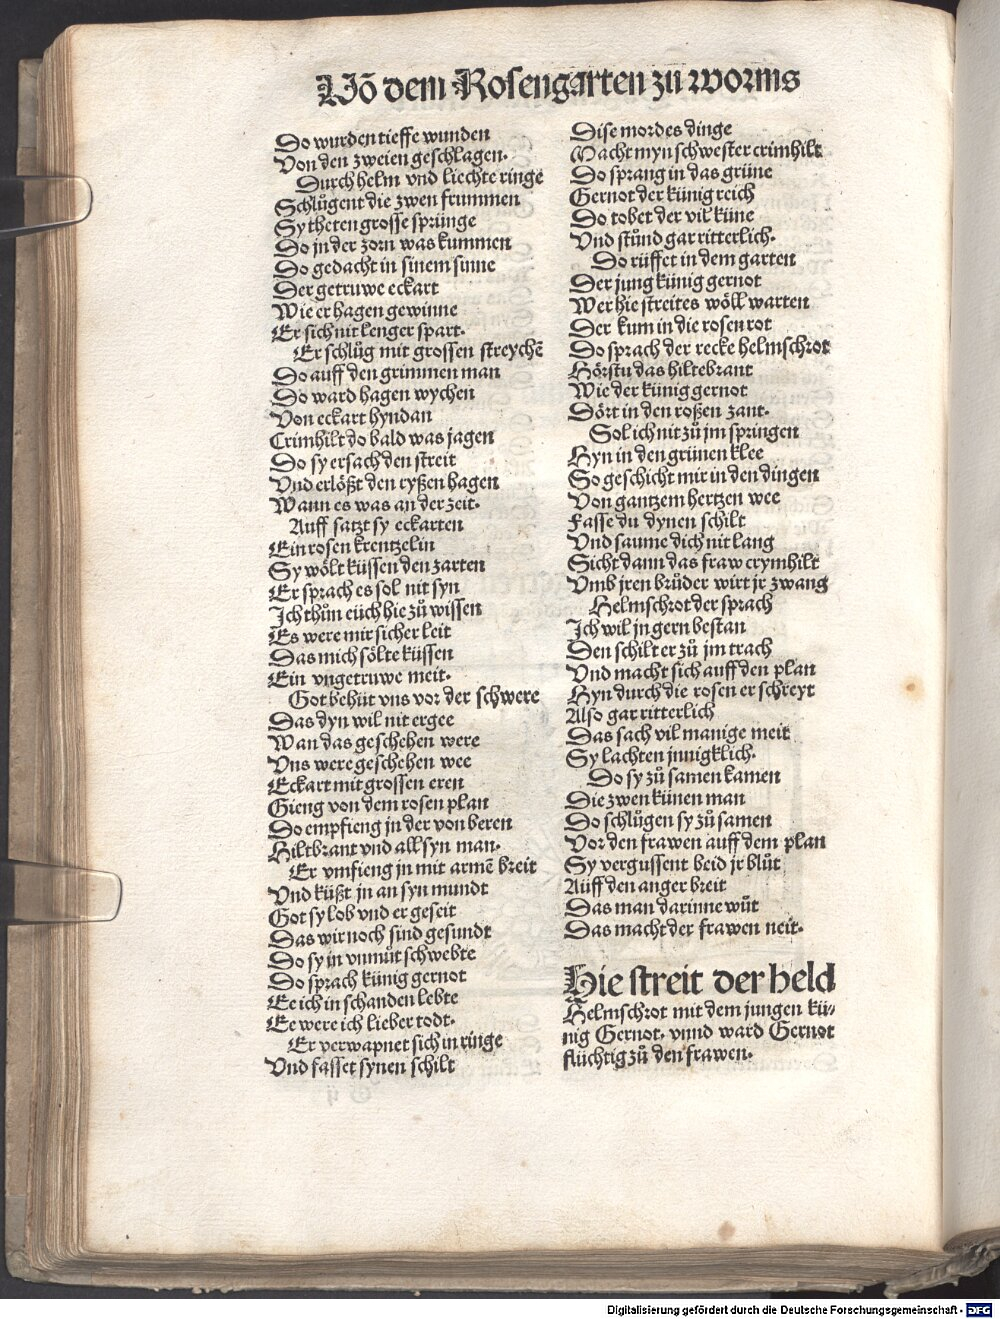 Vō dem Rosengarten zů worms
Do wurden tieffe wunden
Von den zweien geschlagen.
Durch helm vnd liechte ringe
Schlůgent die zwen frummen
Sy theten grosse sprünge
Do jn der zorn was kummen
Do gedacht in sinem sinne
Der getruwe eckart
Wie er hagen gewinne
Er sich nit lenger spart.
Er schlůg mit grossen streychē
Do auff den grimmen man
Do ward hagen wychen
Von eckart hyndan
Crimhilt do bald was jagen
Do sy ersach den streit
Vnd erlößt den ryßen hagen
Wann es was an der zeit.
Auff satzt sy eckarten
Ein rosen krentzelin
Sy wölt küssen den zarten
Er sprach es sol nit syn
Ich thůn eüch hie zů wissen
Es were mir sicher leit
Das mich sölte küssen
Ein vngetruwe meit.
Got behüt vns vor der schwere
Das dyn wil nit ergee
Wan das geschehen were
Vns were geschehen wee
Eckart mit grossen eren
Gieng von dem rosen plan
Do empfieng jn der von beren
Hiltbrant vnd all syn man.
Er vmfieng jn mit armē breit
Vnd küßt jn an syn mundt
Got sy lob vnd er geseit
Das wir noch sind gesundt
Do sy in vnmůt schwebte
Do sprach künig gernot
Ee ich in schanden lebte
Ee were ich lieber todt.
Er verwapnet sich in ringe
Vnd fasset synen schilt
Dise mordes dinge
Macht myn schwester crimhilt
Do sprang in das grüne
Gernot der künig reich
Do tobet der vil küne
Vnd stůnd gar ritterlich.
Do rüffet in dem garten
Der jung künig gernot
Wer hie streites wöll warten
Der kum in die rosen rot
Do sprach der recke helmschrot
Hörstu das hiltebrant
Wie der künig gernot
Dört in den roßen zant.
Sol ich nit zů jm springen
Hyn in den grünen klee
So geschicht mir in den dingen
Von gantzem hertzen wee
Fasse du dynen schilt
Vnd saume dich nit lang
Sicht dann das fraw crymhilt
Vmb jren brůder wirt jr zwang
Helmschrot der sprach
Ich wil jn gern bestan
Den schilt er zů jm trach
Vnd macht sich auff den plan
Hyn durch die rosen er schreyt
Also gar ritterlich
Das sach vil manige meit
Sy lachten jnnigklich.
Do sy zů samen kamen
Die zwen künen man
Do schlůgen sy zů samen
Vor den frawen auff dem plan
Sy vergussent beid jr blůt
Auff den anger breit
Das man darinne wůt
Das macht der frawen neit.
Hie streit der held
Helmschrot mit dem jungen kü-
nig Gernot. vnnd ward Gernot
flüchtig zů den frawen.
Digitalisierung gefördert durch die Deutsche Forschungsgemeinschaft - DFG